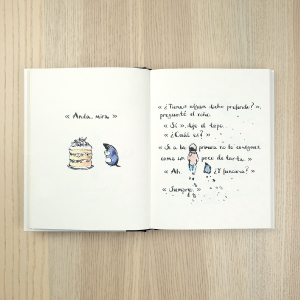 « Anda, mira. »
« ¿Tienes algún dicho preferido? »,
preguntó el niño.
« Sí », dijo el topo.
« ¿Cuál es? »
« Si a la primera no lo consigues
come un poco de tarta. »
« Ah. ¿Y funciona? »
« Siempre. »